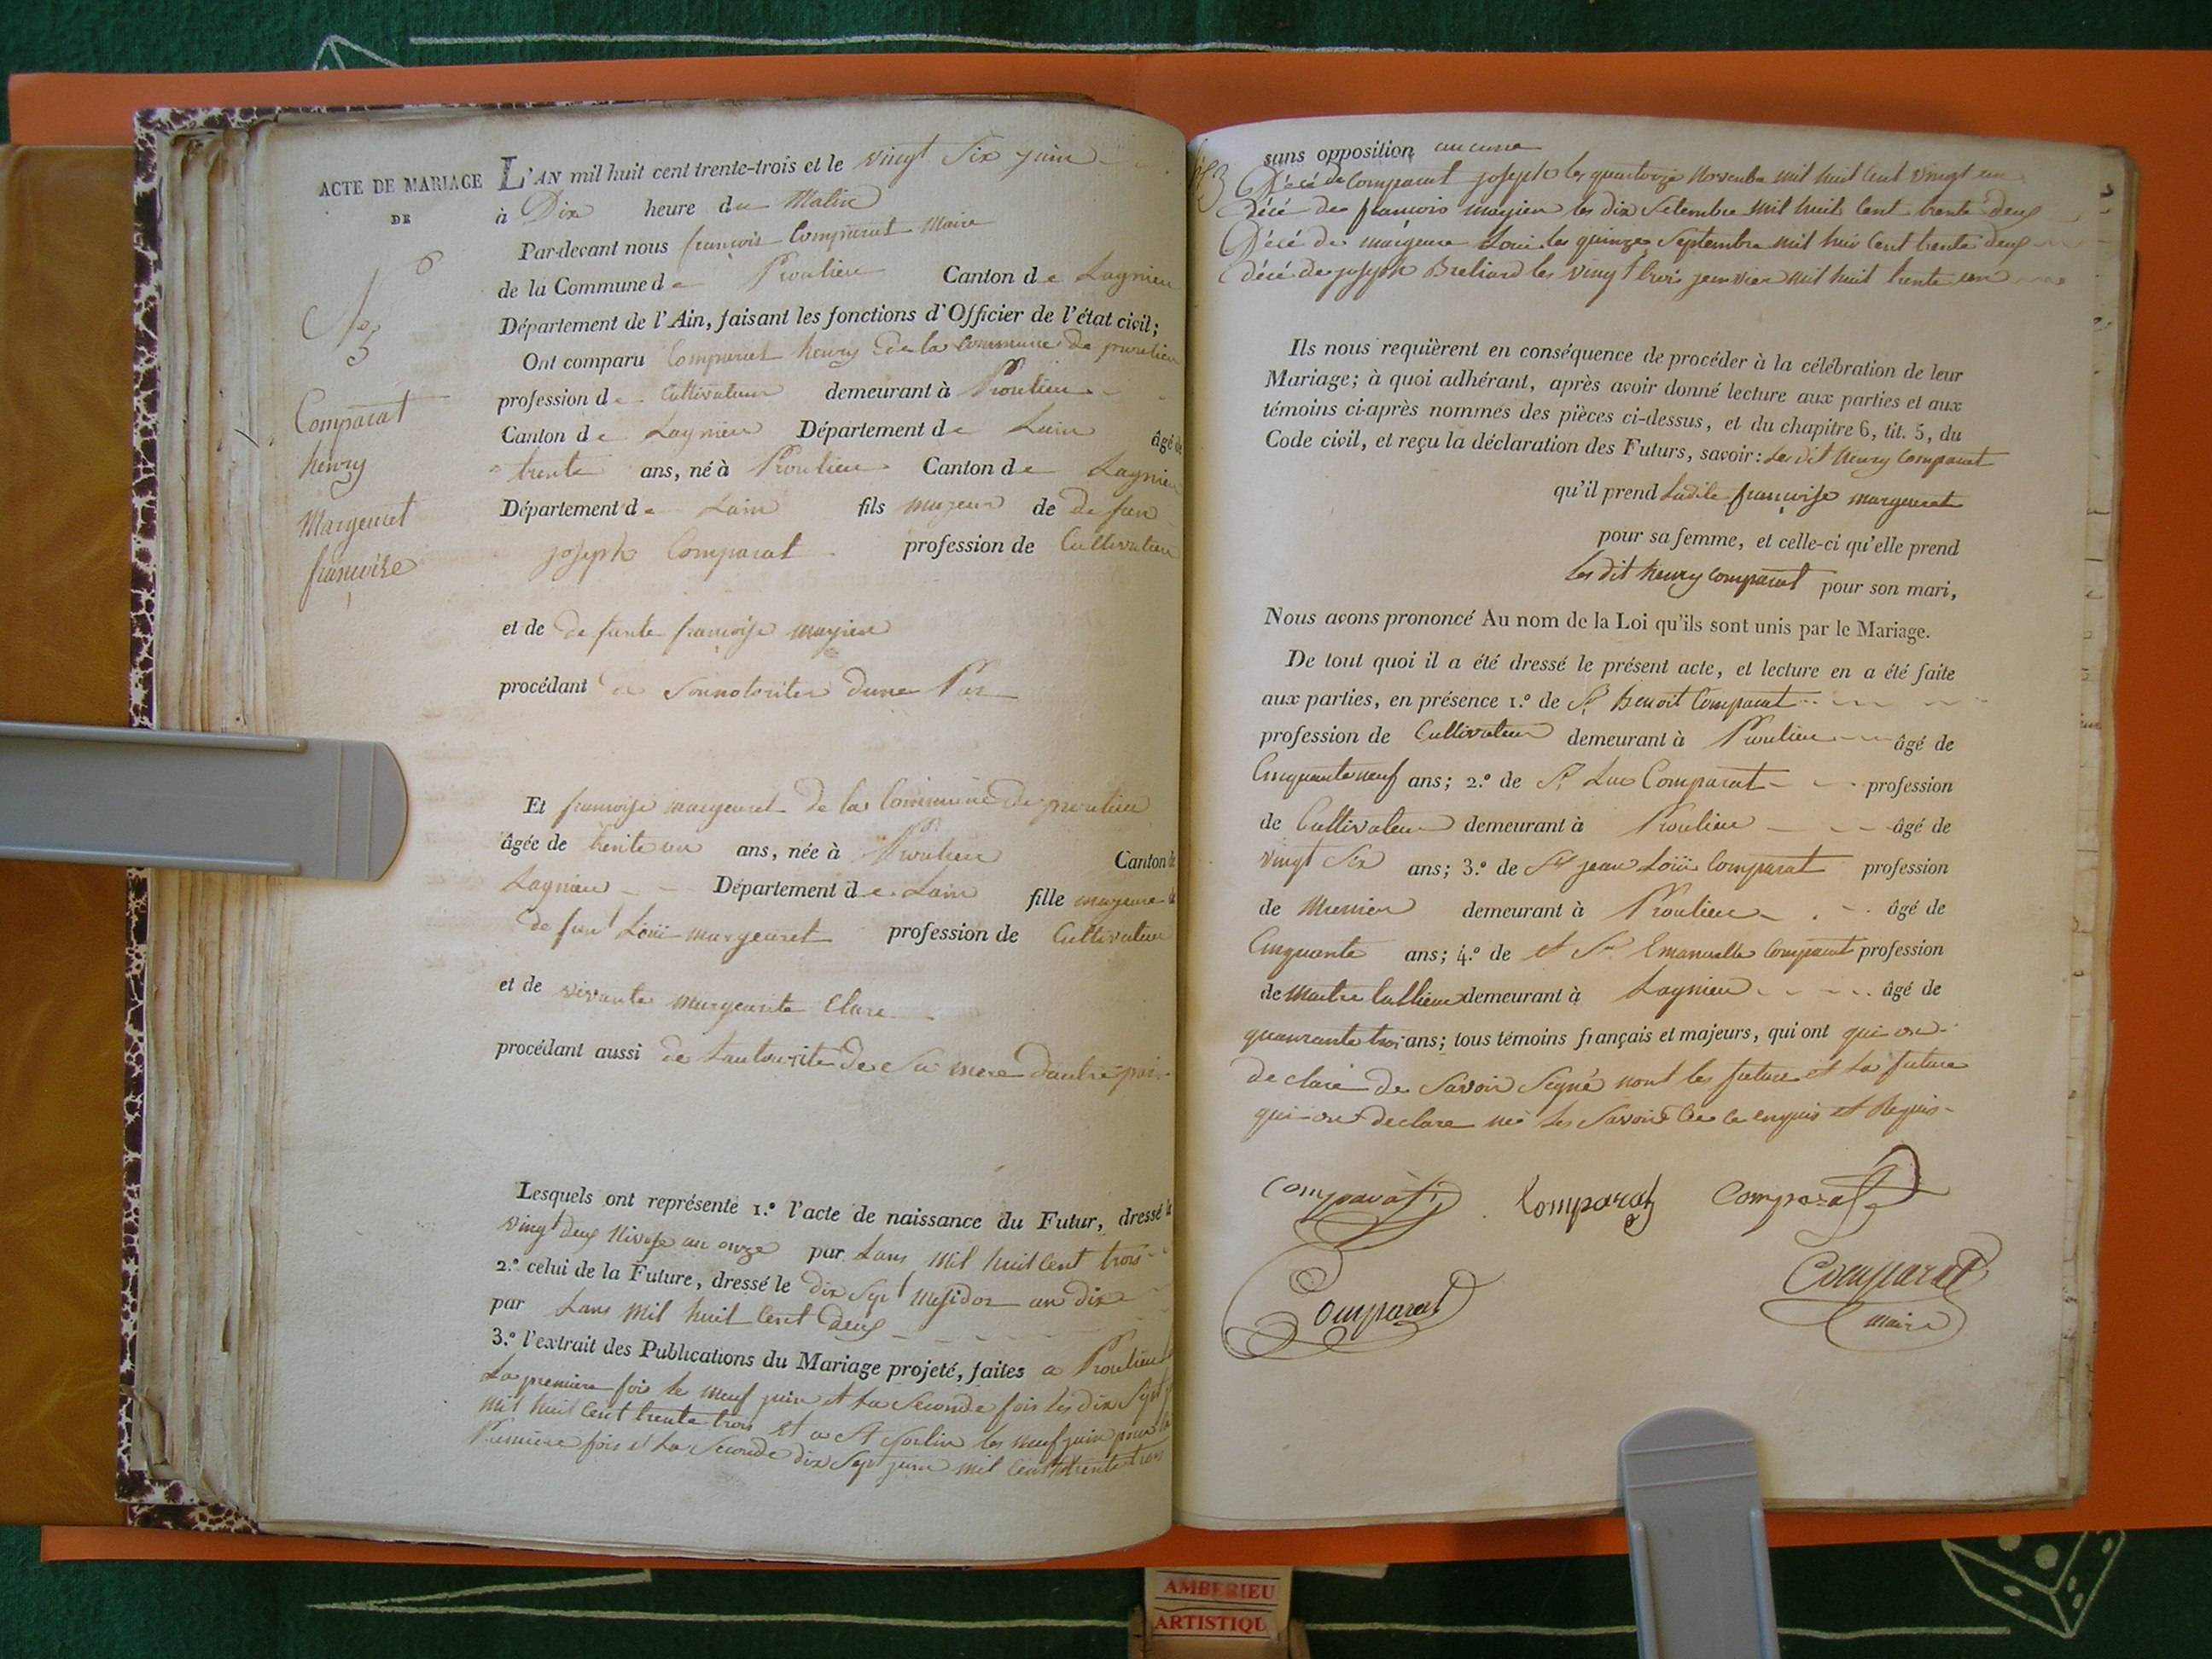 ACTE DE MARIAGE
DE
N°
5
Comparat
henry
Margeuret
françoise
L'AN mil huit cent trente-trois et le vingt Six juin
à Dix heure du Matin
Par-devant nous françois Comparat Maire
de la Commune de Proulieu Canton de Lagnieu
Département de l'Ain, faisant les fonctions d'Officier de l'état civil;
Ont comparu Comparat henry de la Commune de proulieu
profession de Cultivateur demeurant à Proulieu
Canton de Lagnieu Département de Lain âgé de
trente ans, né à Proulieu Canton de Lagnieu
Département de Lain fils majeur de de feu
joseph Comparat profession de Cultivateur
et de de funte françoise mayien
procédant de Sonnotoriter dune Par
Et françoise margeuret de la Commune de proulieu
âgée de trente un ans, née à Proulieu Canton de
Lagnieu Département de Lain fille majeure de
de feu Loüi margeuret profession de Cultivateur
et de vivante margeurite Clare
procédant aussi de Lautourite de Sa mere dautre par
Lesquels ont représenté 1.° l'acte de naissance du Futur, dressé le
vingt deux Nivose an onze par Lans mil huit Cent trois
2.° celui de la Future, dressé le dix Sept Messidor an dix
par Lans mil huit Cent deux
3.° l'extrait des Publications du Mariage projeté, faites a Proulieu
La premiere fois le neuf juin et La Seconde fois les dix Sept
mil huit Cent trente trois et a St Sorlin les neuf juin pour la
Premiere fois et La Seconde dix Sept juin mil Cent trente trois
sans opposition aucune
Décé de Comparat joseph les quatorze Novembre mil huit Cent vingt un
décé de françois mayien les dix Setembre mil huit Cent trente deux
Décé de margeure Loui les quinze Septembre mil hui Cent trente deux
décé de joseph Breliard les vingt trois jenvier mil huit trente un
Ils nous requièrent en conséquence de procéder à la célébration de leur
Mariage; à quoi adhérant, après avoir donné lecture aux parties et aux
témoins ci-après nommés des pièces ci-dessus, et du chapitre 6, tit. 5, du
Code civil, et reçu la déclaration des Futurs, savoir: Les dit henry Comparat
qu'il prend Ladite françoise margeurat
pour sa femme, et celle-ci qu'elle prend
Les dit henry Comparat pour son mari,
Nous avons prononcé Au nom de la Loi qu'ils sont unis par le Mariage.
De tout quoi il a été dressé le présent acte, et lecture en a été faite
aux parties, en présence 1.° de Sr benoit Comparat
profession de Cultivateur demeurant à Proulieu âgé de
Cinquante neuf ans; 2.° de Sr Luc Comparat profession
de Cultivateur demeurant à Proulieu âgé de
vingt Six ans; 3.° de Sr jean Loüi Comparat profession
de Munier demeurant à Proulieu âgé de
Cinquante ans; 4.° de et Sr Emanuelle Comparat profession
de Maitre demeurant à Lagnieu âgé de
quaurante trois ans; tous témoins français et majeurs, qui ont qui on
declaré de Savoir Signé nont les future et La future
qui on declare né Les Savoir de ce enquis et Requis
Comparat Comparat Comparat
Comparat
Comparat
maire
AMBERIEU
ARTISTIQU